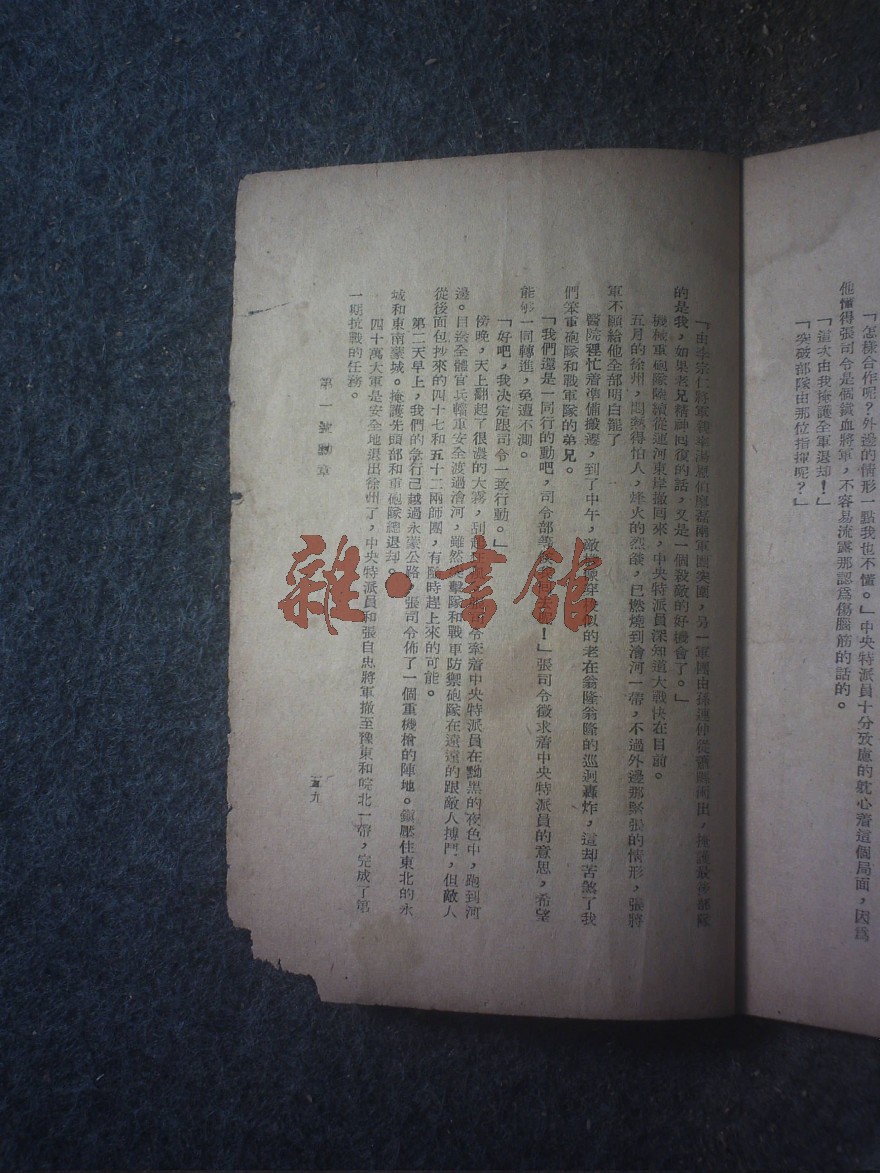 「怎樣合作呢？外邊的情形一點我也不懂。」中央特派員十分致慮的躭心着這個局面，因爲
他懂得張司令是個鐵血將軍，不容易流露那認爲傷腦筋的話的。
「這次由我掩護全軍退却！」
「突破部隊由那位指揮呢？」
「由李宗仁將軍親率湯恩伯廖磊兩軍團突圍，另一軍團由孫連仲從 出，掩護最後部隊
的是我，如果老兄精神囘復的話，又是一個殺敵的好機會了。」
機械重砲隊陸續從運河東岸撤囘來，中央特派員深知道大戰快在目前。
五月的徐州，悶熱得怕人，烽火的烈燄，已燃燒到澮河一帶，不過外邊那緊張的情形，張將
軍不願給他全部明白罷了
醫院裡忙着準備搬遷，到了中午，敵機 穿梭似的老在翁隆翁隆的巡迴轟炸，這却苦煞了我
們笨重砲隊和戰軍隊的弟兄。
「我們還是一同行的動吧，司令部等 ！」張司令徵求着中央特派員的意思，希望
能够一同轉進，免遭不測。
「好吧，我决定跟司令一致行動。」
傍晚，天上翻起了很濃的大霧，刮 司令牽着中央特派員在黝黑的夜色中，跑到河
邊。目送全體官兵輜重安全渡過澮河，雖然突擊隊和戰車防禦砲隊在遠遠的跟敵人搏鬥，但敵人
從後面包抄來的四十七和五十二兩師團，有隨時趕上來的可能。
第二天早上，我們的急行已越過永蒙公路，張司令佈了一個重機槍的陣地。鎭壓住東北的永
城和東南蒙城。掩護先頭部和重砲隊總退却。
四十萬大軍是安全地退出徐州了，中央特派員和張自忠將軍撤至豫東和皖北一帶，完成了第
一期抗戰的任務。
第一號勳章
五九
雜·書舘